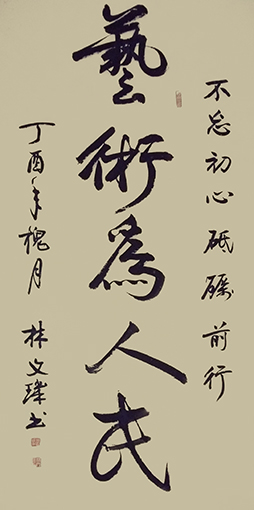 不忘初心砥礪前行
藝術為人民
丁酉年槐月
林文瑋書